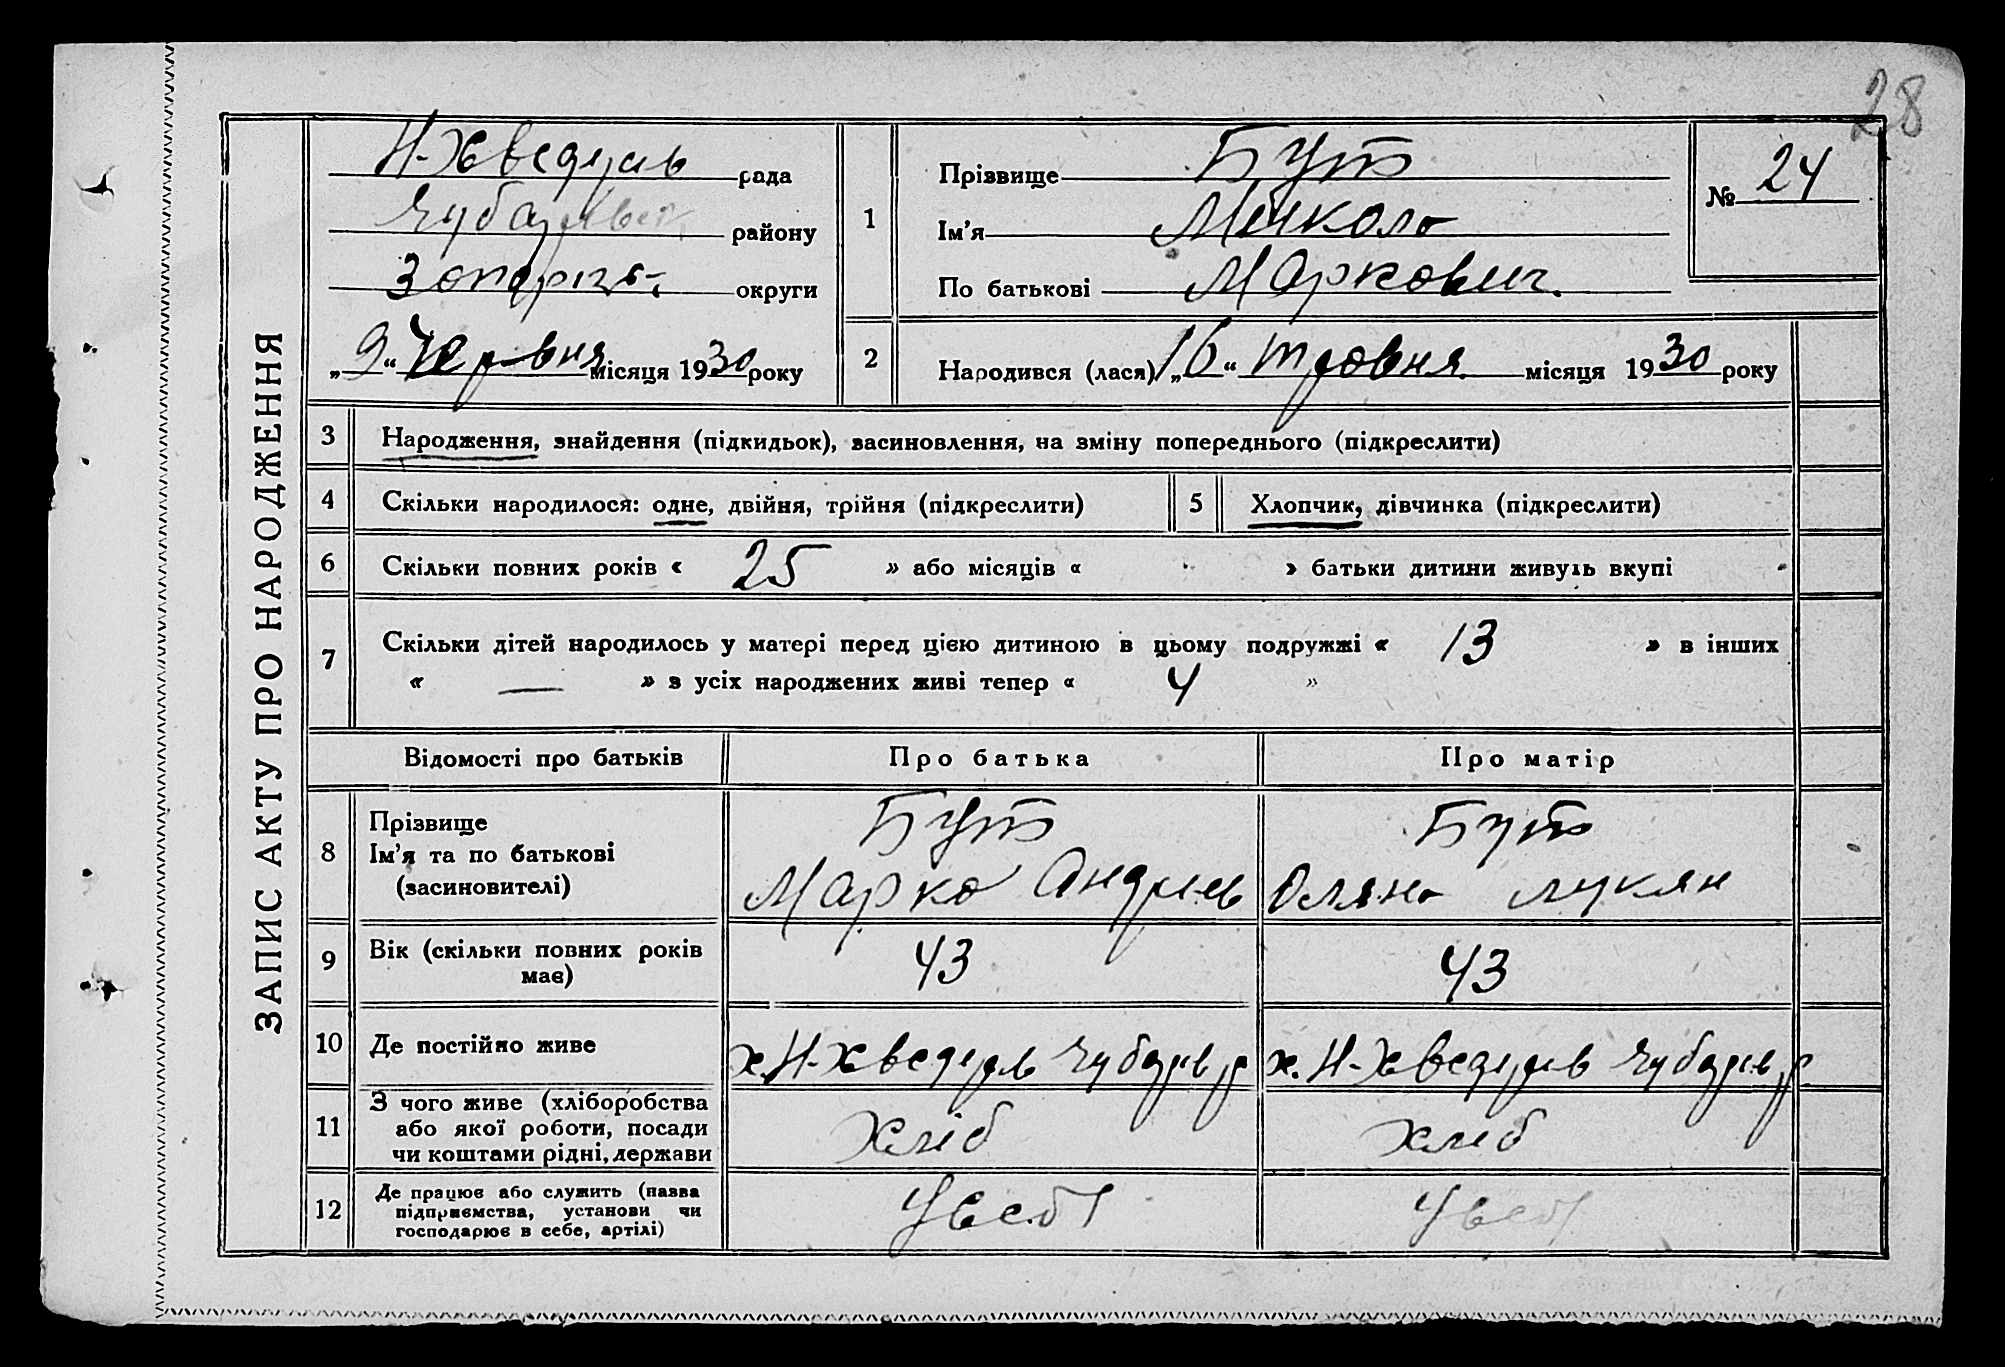 28
ЗАПИС АКТУ ПРО НАРОДЖЕННЯ
Н-Хведерів рада
Чубарівськ району
Запоріж округи
„9“ Червня місяця 1930 року
1
Прізвище Бут
Ім’я Микола
По батькові Маркович.
№ 24
2
Народився (лася) „16“ травня місяця 1930 року
3 Народження, знайдення (підкидьок), засиновлення, на зміну попереднього (підкреслити)
4 Скільки народилося: одне, двійня, трійня (підкреслити)
5 Хлопчик, дівчинка (підкреслити)
6 Скільки повних років « 25 » або місяців « » батьки дитини живуть вкупі
7 Скільки дітей народилось у матері перед цією дитиною в цьому подружжі « 13 » в інших
« — » з усіх народжених живі тепер « 4 »
Відомості про батьків Про батька Про матір
8 Прізвище
Ім’я та по батькові
(засиновителі)
Бут
Марко Андріїв
Бут
Оляна Лукян
9 Вік (скільки повних років
має)
43
43
10 Де постійно живе
х. Н-Хведерів Чубарів р
х. Н-Хведерів Чубарів р
11 З чого живе (хліборобства
або якої роботи, посади
чи коштами рідні, держави
Хліб
Хліб
12 Де працює або служить (назва
підприємства, установи чи
господарює в себе, артілі)
У себ
У себ